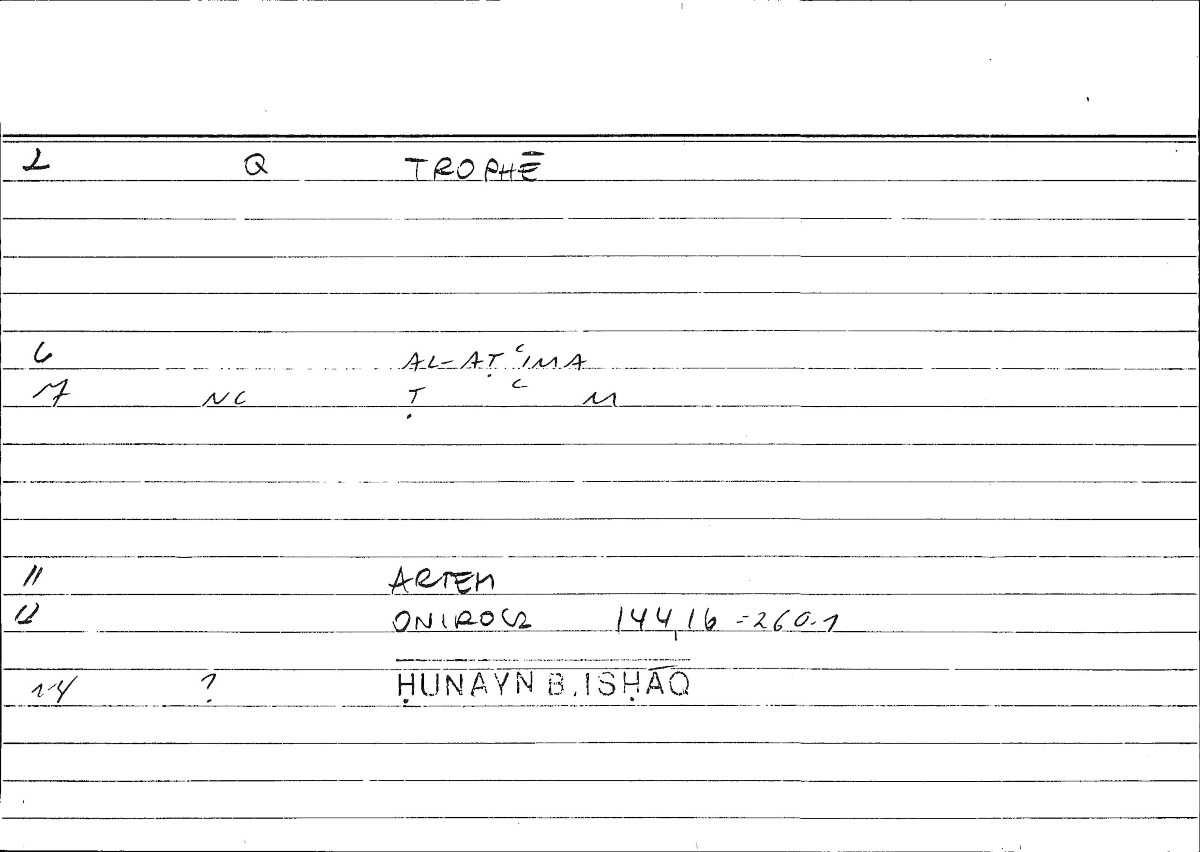 2 Q TROPHĒ
6 AL-AṬʿIMA
17 NC Ṭ ʿ M
11 ARTEM
12 ONIROCR 144,16 = 260.1
14 ? ḤUNAYN B. ISḤĀQ